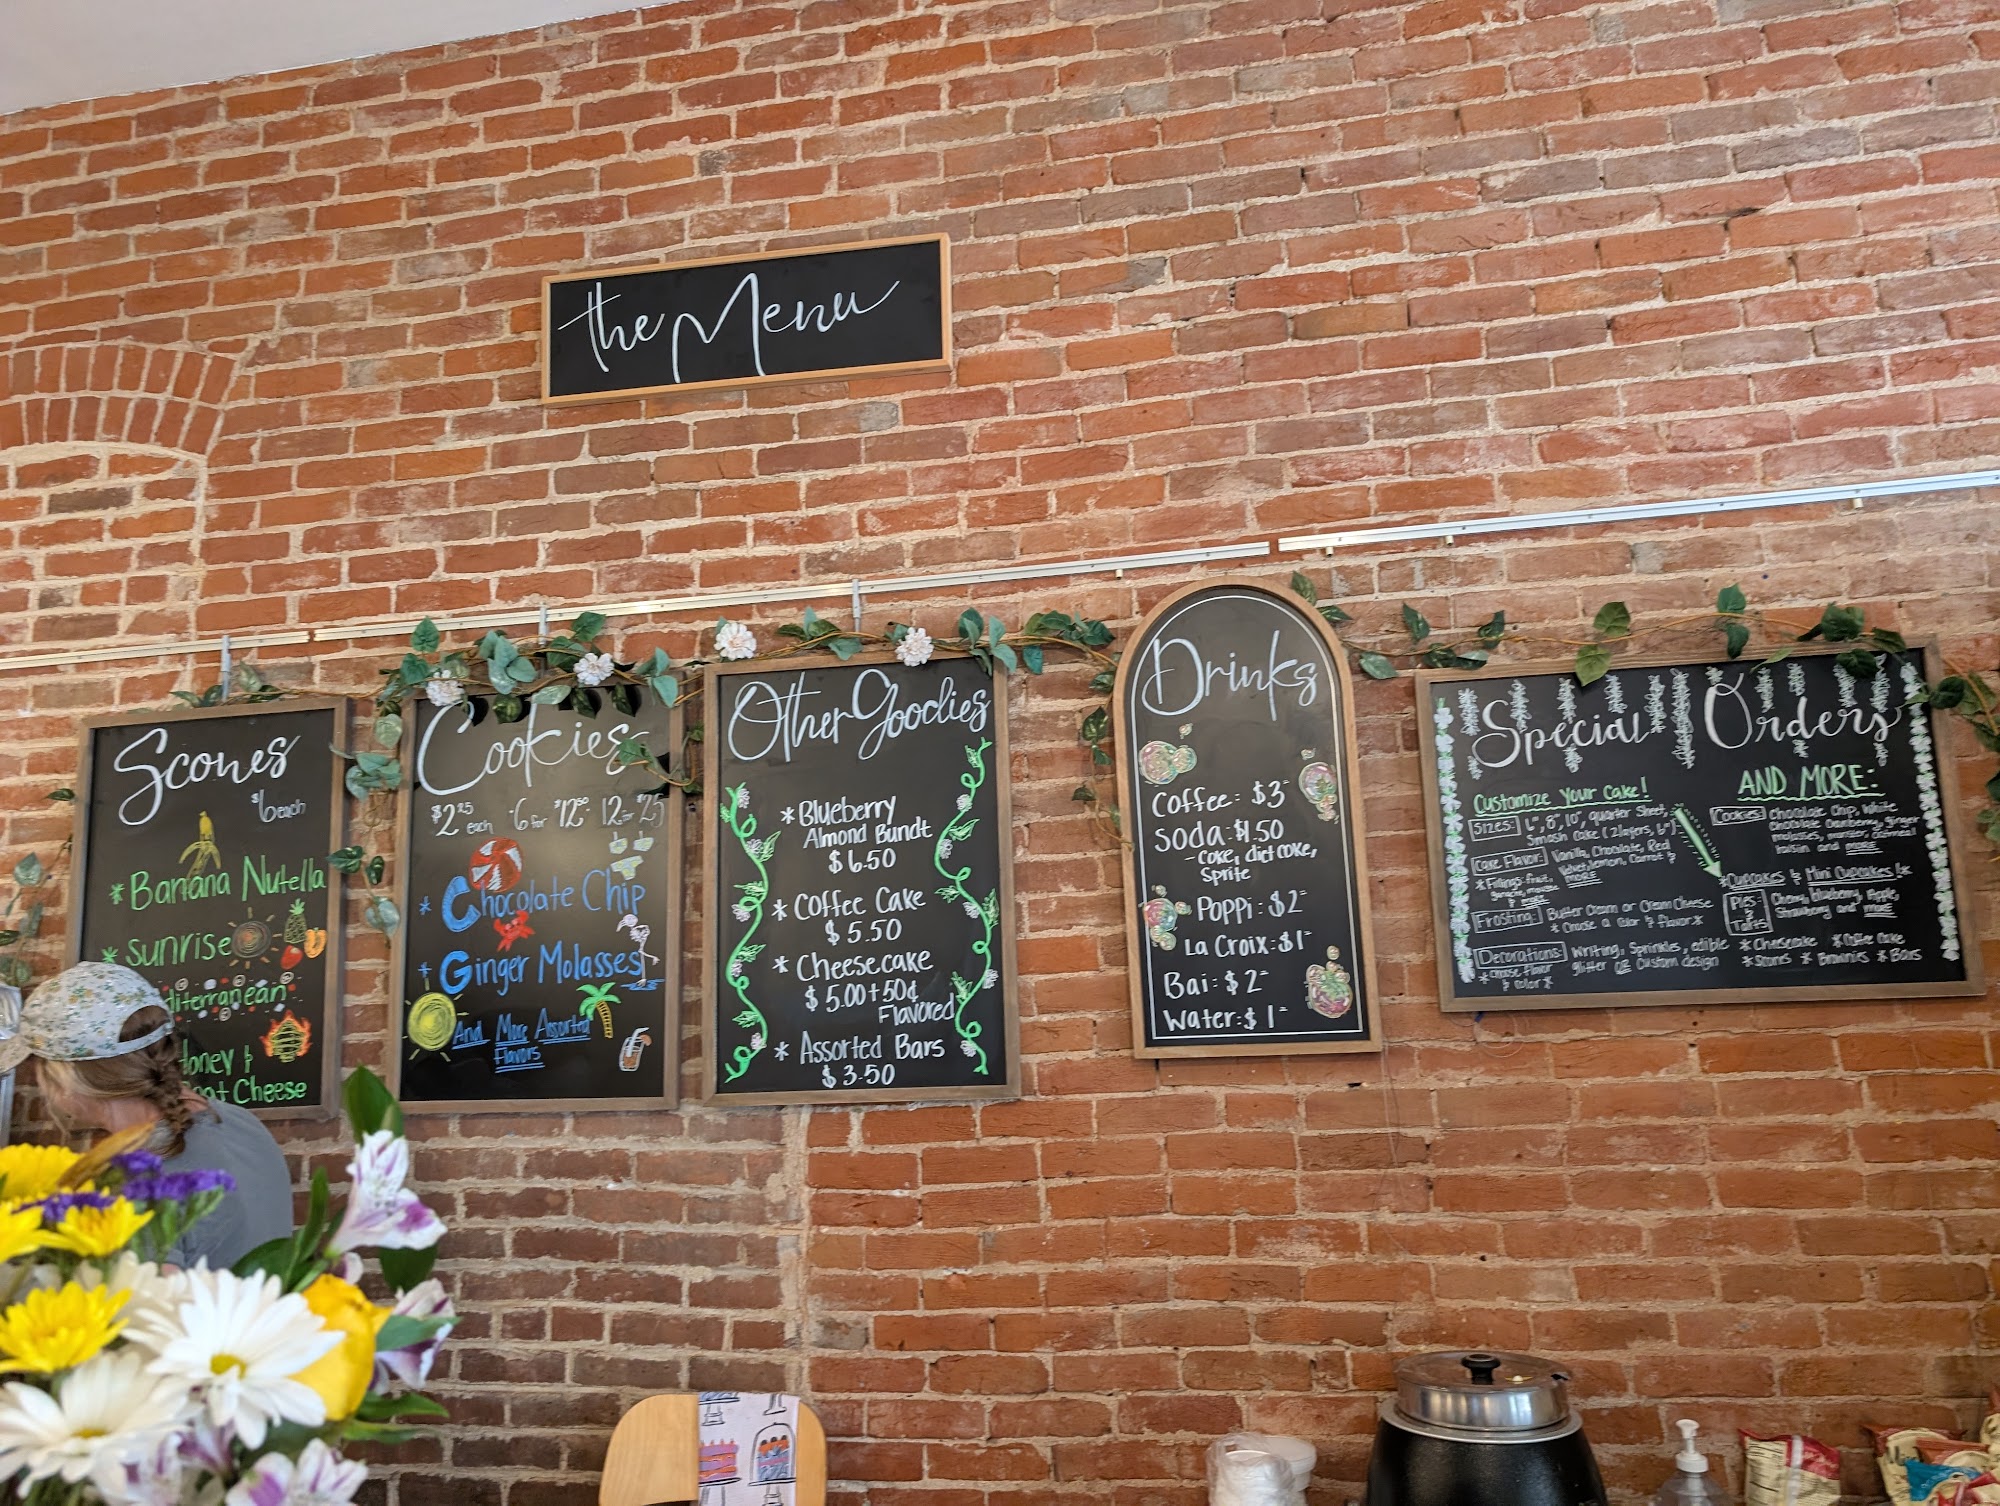 the Menu
Scones
$6 each
* Banana Nutella
* Sunrise
diterranean
Honey &
oat Cheese
Cookies
$2.25 each 6 for $12.50 12 for $25
* Chocolate Chip
* Ginger Molasses
And More Assorted
Flavors
Other Goodies
* Blueberry
Almond Bundt
$6.50
* Coffee Cake
$5.50
* Cheesecake
$5.00 + 50¢
Flavored
* Assorted Bars
$3.50
Drinks
Coffee: $3
Soda: $1.50
- Coke, diet coke,
Sprite
Poppi: $2
La Croix: $1
Bai: $2
Water: $1
Special Orders
Customize Your Cake!
Sizes: 6", 8", 10", quarter Sheet,
Smash Cake (2 layers, 6")
Cake Flavor: Vanilla, Chocolate, Red
Velvet, Lemon, Carrot &
more
* Fillings: fruit,
ganache, mousse
& more
Frosting: Butter Cream or Cream Cheese
* Choose a Color & flavor *
Decorations: Writing, Sprinkles, edible
glitter OR Custom design
* Choose Flavor
& Color *
AND MORE:
Cookies: Chocolate Chip, White
Chocolate Cranberry, ginger
molasses, monster, oatmeal
raisin and more
* Cupcakes & Mini Cupcakes! *
Pies & Tarts: Cherry, blueberry, Apple,
Strawberry and more
* Cheesecake * Coffee Cake
* Scones * Brownies * Bars